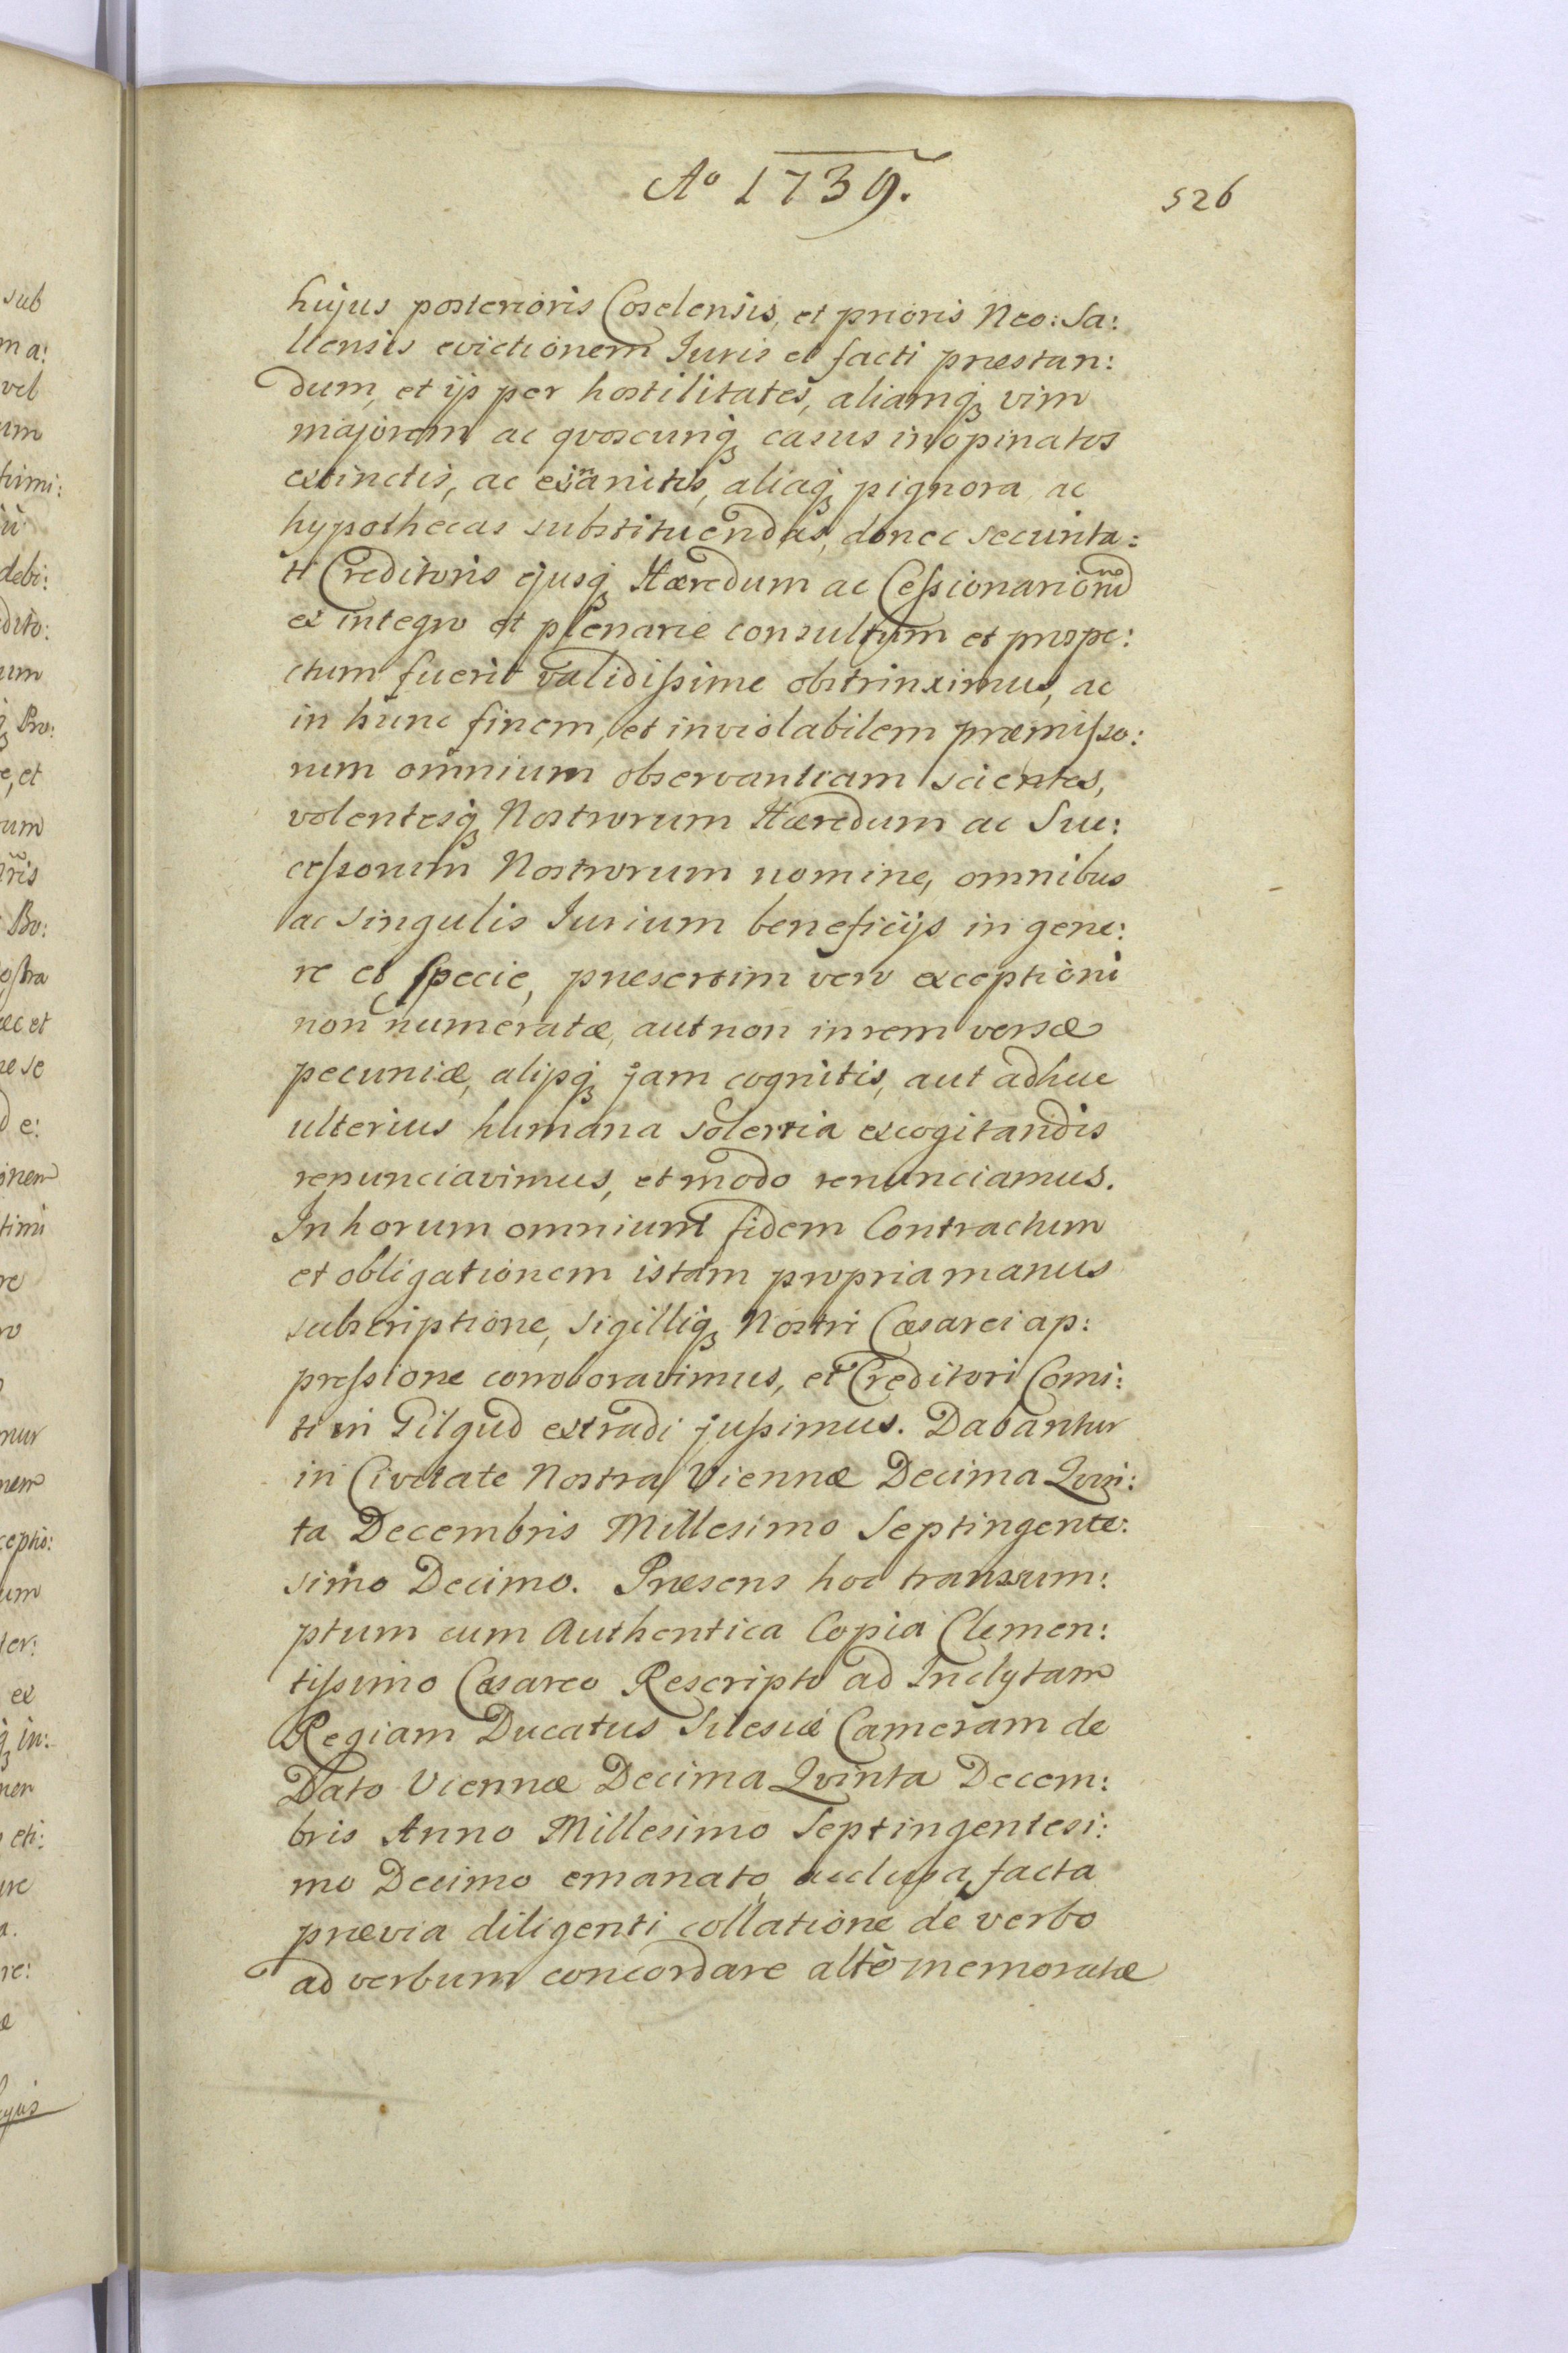 Aº 1739.
526
hujus posterioris Coselensis, et prioris Neo: Sa:
ltensis evictionem Juris et facti præstan:
dum, et ijs per hostilitates, aliamq̃ vim
majorem ac qvoscunq̃ casus inopinatos
extinctis, ac exinanitis, aliaq̃ pignora ac
hypothecas substituendas, donec securita:
ti Creditoris ejusq̃ Hæredum ac Cessionariorũ
ex integro et plenarie consultum et prospe:
ctum fuerit validissime obstrinximus, ac
in hunc finem, et inviolabilem præmisso:
rum omnium observantiam scientes,
volentesq̃ Nostrorum Hæredum ac Suc:
cessorum Nostrorum nomine, omnibus
ac singulis Jurium beneficijs in gene:
re et specie, præsertim vero exceptioni
non numeratæ, aut non in rem versæ
pecuniæ, alijsq̃ jam cognitis, aut adhuc
ulterius humana solertia excogitandis
renunciavimus, et modo renunciamus.
In horum omnium fidem Contractum
et obligationem istam propria manus
subscriptione, sigilliq̃ Nostri Cæsarei ap:
pressione corroboravimus, et Creditori Comi:
ti in Tilgud extradi jussimus. Dabantur
in Civitate Nostra Viennæ Decima Qvin:
ta Decembris Millesimo Septingente:
simo Decimo. Præsens hoc transum:
ptum cum Authentica Copia Clemen:
tissimo Cæsareo Rescripto ad Inclytam
Regiam Ducatus Silesiæ Cameram de
Dato Viennæ Decima Qvinta Decem:
bris Anno Millesimo Septingentesi:
mo Decimo emanato acclusa, facta
prævia diligenti collatione de verbo
ad verbum concordare altè memoratæ